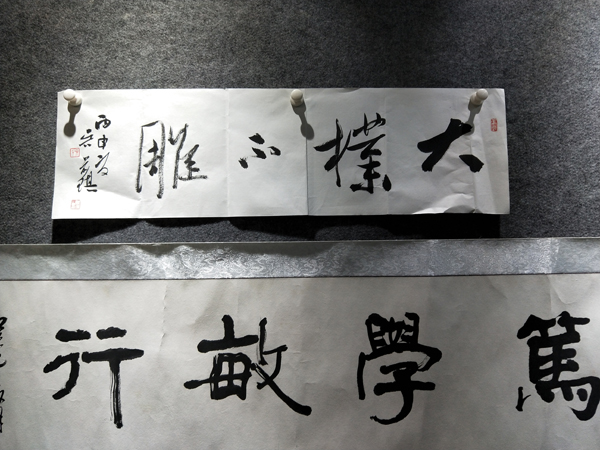 大樸不雕
丙申
篤學敏行